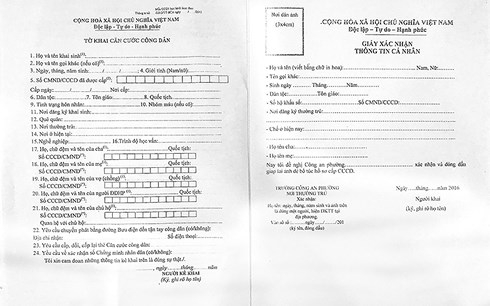 CỘNG HOÀ XÃ HỘI CHỦ NGHĨA VIỆT NAM
Độc lập - Tự do - Hạnh phúc
TỜ KHAI CĂN CƯỚC CÔNG DÂN
1. Họ và tên khai sinh(1):
2. Họ và tên gọi khác (nếu có)(1):
3. Ngày, tháng, năm sinh:...../...../.......; 4. Giới tính (Nam/nữ):
5. Số CMND/CCCD đã được cấp(2):
Cấp ngày:...../...../....... Nơi cấp:
6. Dân tộc: 7. Tôn giáo: 8. Quốc tịch:
9. Tình trạng hôn nhân: 10. Nhóm máu (nếu có):
11. Nơi đăng ký khai sinh:
12. Quê quán:
13. Nơi thường trú:
14. Nơi ở hiện tại:
15. Nghề nghiệp: 16. Trình độ học vấn:
17. Họ, chữ đệm và tên của cha(1): Quốc tịch:
Số CCCD/CMND(*):
18. Họ, chữ đệm và tên của mẹ(1): Quốc tịch:
Số CCCD/CMND(*):
19. Họ, chữ đệm và tên của vợ (chồng)(1): Quốc tịch:
Số CCCD/CMND(*):
20. Họ, chữ đệm và tên của người ĐDHP(1): Quốc tịch:
Số CCCD/CMND(*):
21. Họ, chữ đệm và tên của chủ hộ(1):
Số CCCD/CMND(*):
Quan hệ với chủ hộ:
22. Yêu cầu chuyển phát bằng đường Bưu điện đến tận tay công dân (có/không):
Địa chỉ nhận: Số điện thoại:
23. Yêu cầu cấp, đổi, cấp lại thẻ Căn cước công dân:
24. Yêu cầu về xác nhận số Chứng minh nhân dân (có/không):
Tôi xin cam đoan những thông tin kê khai trên là đúng sự thật./.
......, ngày......tháng......năm
NGƯỜI KÊ KHAI
(Ký, ghi rõ họ tên)
Nơi dán ảnh
(3x4cm)
CỘNG HOÀ XÃ HỘI CHỦ NGHĨA VIỆT NAM
Độc lập – Tự do – Hạnh phúc
GIẤY XÁC NHẬN
THÔNG TIN CÁ NHÂN
- Họ và tên (viết bằng chữ in hoa): Nam, Nữ:
- Tên gọi khác:
- Sinh ngày Tháng Năm
- Dân tộc: Tôn giáo:
- Số hộ khẩu số: Số CMND/CCCD:
- Nơi đăng ký thường trú:
- Chỗ ở hiện nay:
- Họ tên cha:
- Họ tên mẹ:
Nay tôi đề nghị Công an phường xác nhận và đóng dấu
giáp lai ảnh để bổ túc hồ sơ cấp CCCD.
TRƯỞNG CÔNG AN PHƯỜNG
NƠI THƯỜNG TRÚ
Xác nhận:
Họ tên, ngày, tháng, năm sinh và ảnh trên
là đúng một người, hiện ĐKTT tại
địa phương.
ngày...../...../201
(ký tên, đóng dấu)
Ngày ..... tháng......năm 2016
Người khai
(ký, ghi rõ họ tên)